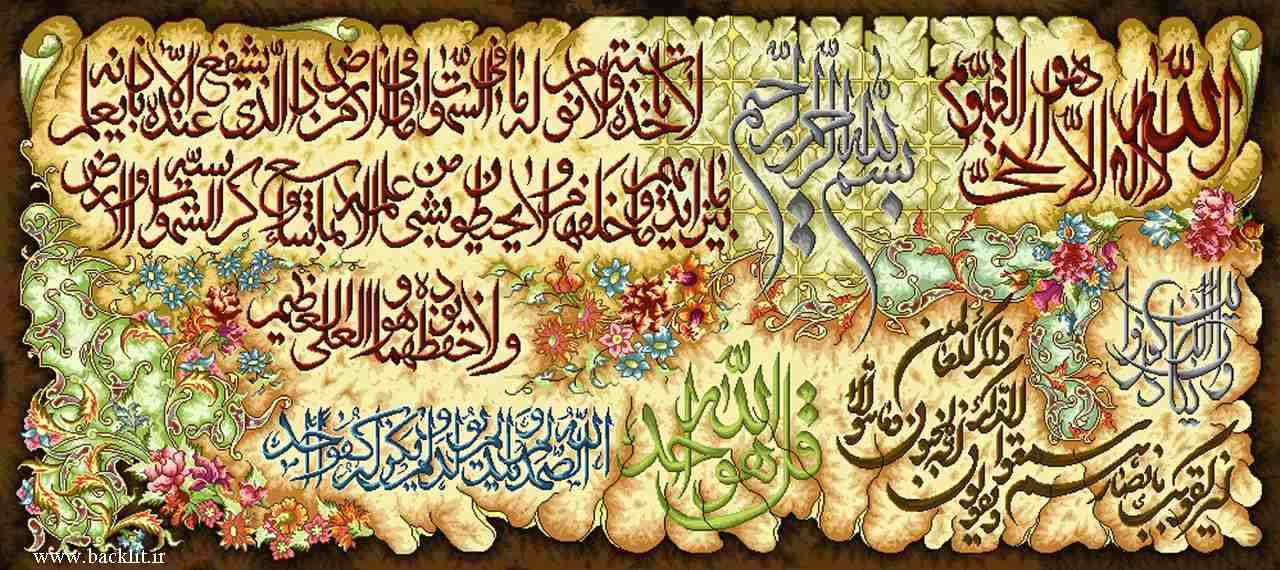 بسم الله الرحمن الرحيم
الله لا اله الا هو الحي القيوم
لا تاخذه سنة ولا نوم له ما في السموات وما في الارض من ذا الذي يشفع عنده الا باذنه يعلم
ما بين ايديهم وما خلفهم ولا يحيطون بشي من علمه الا بما شاء وسع كرسيه السموات والارض
ولا يوده حفظهما وهو العلي العظيم
وان يكاد الذين كفروا
ليزلقونك بابصارهم لما سمعوا الذكر ويقولون انه لمجنون وما هو الا ذكر للعالمين
قل هو الله احد
الله الصمد لم يلد ولم يولد ولم يكن له كفوا احد
www.backlit.ir